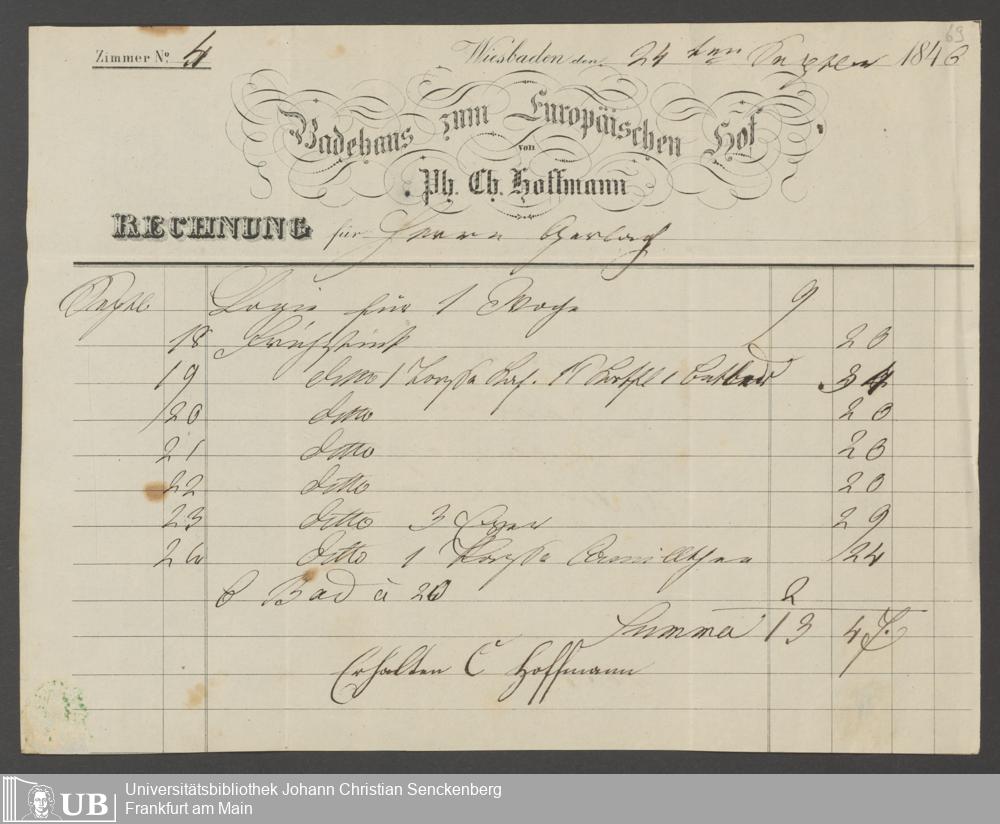 69
Zimmer No. 4 Wiesbaden den 24ten Septber 1846
Badehaus zum Europäischen Hof
von
Ph. Ch. Hoffmann
RECHNUNG für Herrn Gerlach
Septb Logis für 1 Woche 9
18 Frühstück 20
19 ditto 1 34
20 ditto 20
21 ditto 20
22 ditto 20
23 ditto 3 Eyer 29
24 ditto 1 Camillthee 24
6 Bad à 20 2
Summa 13 47
Erhalten C Hoffmann
UB
Universitätsbibliothek Johann Christian Senckenberg
Frankfurt am Main